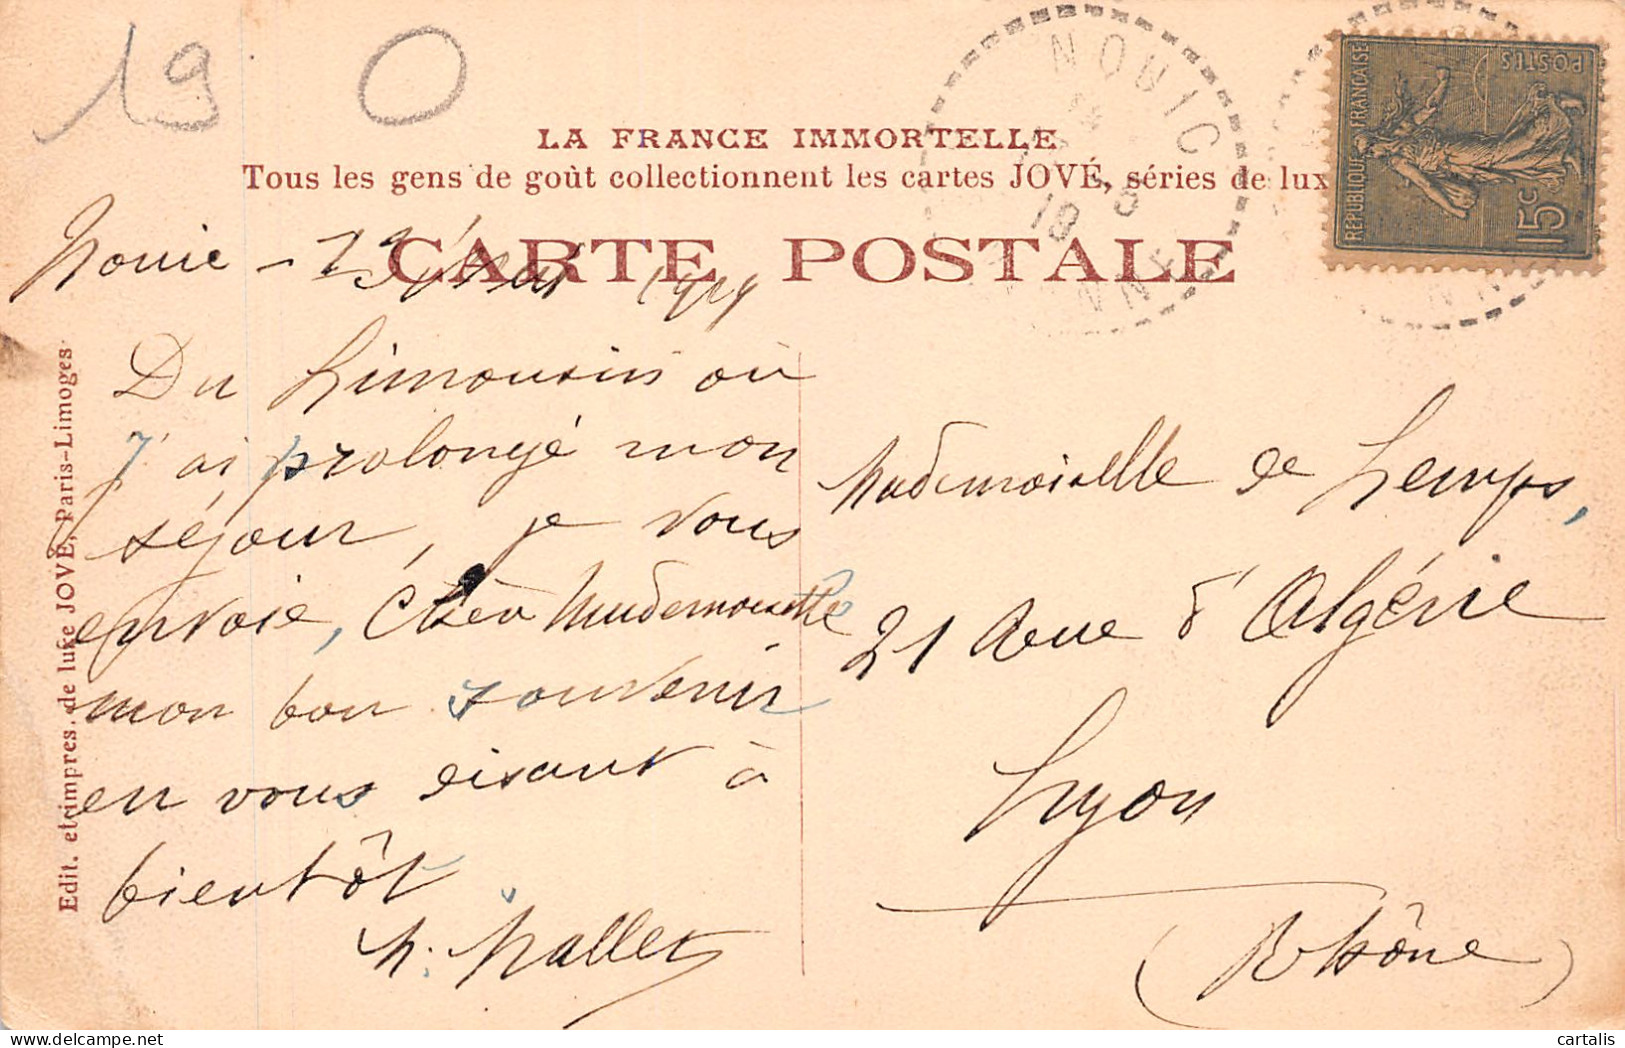 19 O
LA FRANCE IMMORTELLE
Tous les gens de goût collectionnent les cartes JOVÉ, séries de lux
CARTE POSTALE
NOUIC
RÉPUBLIQUE FRANÇAISE
POSTES
15c
Edit. et impres. de luxe JOVÉ, Paris-Limoges
Nouic - 13
Du Limousin où
j'ai prolongé mon
séjour, je vous
envoie, Chère Mademoiselle
mon bon souvenir
en vous disant à
bientôt
M. Mallet
Mademoiselle de Lemps,
21 Rue d'Algérie
Lyon
(Rhône)
cartalis